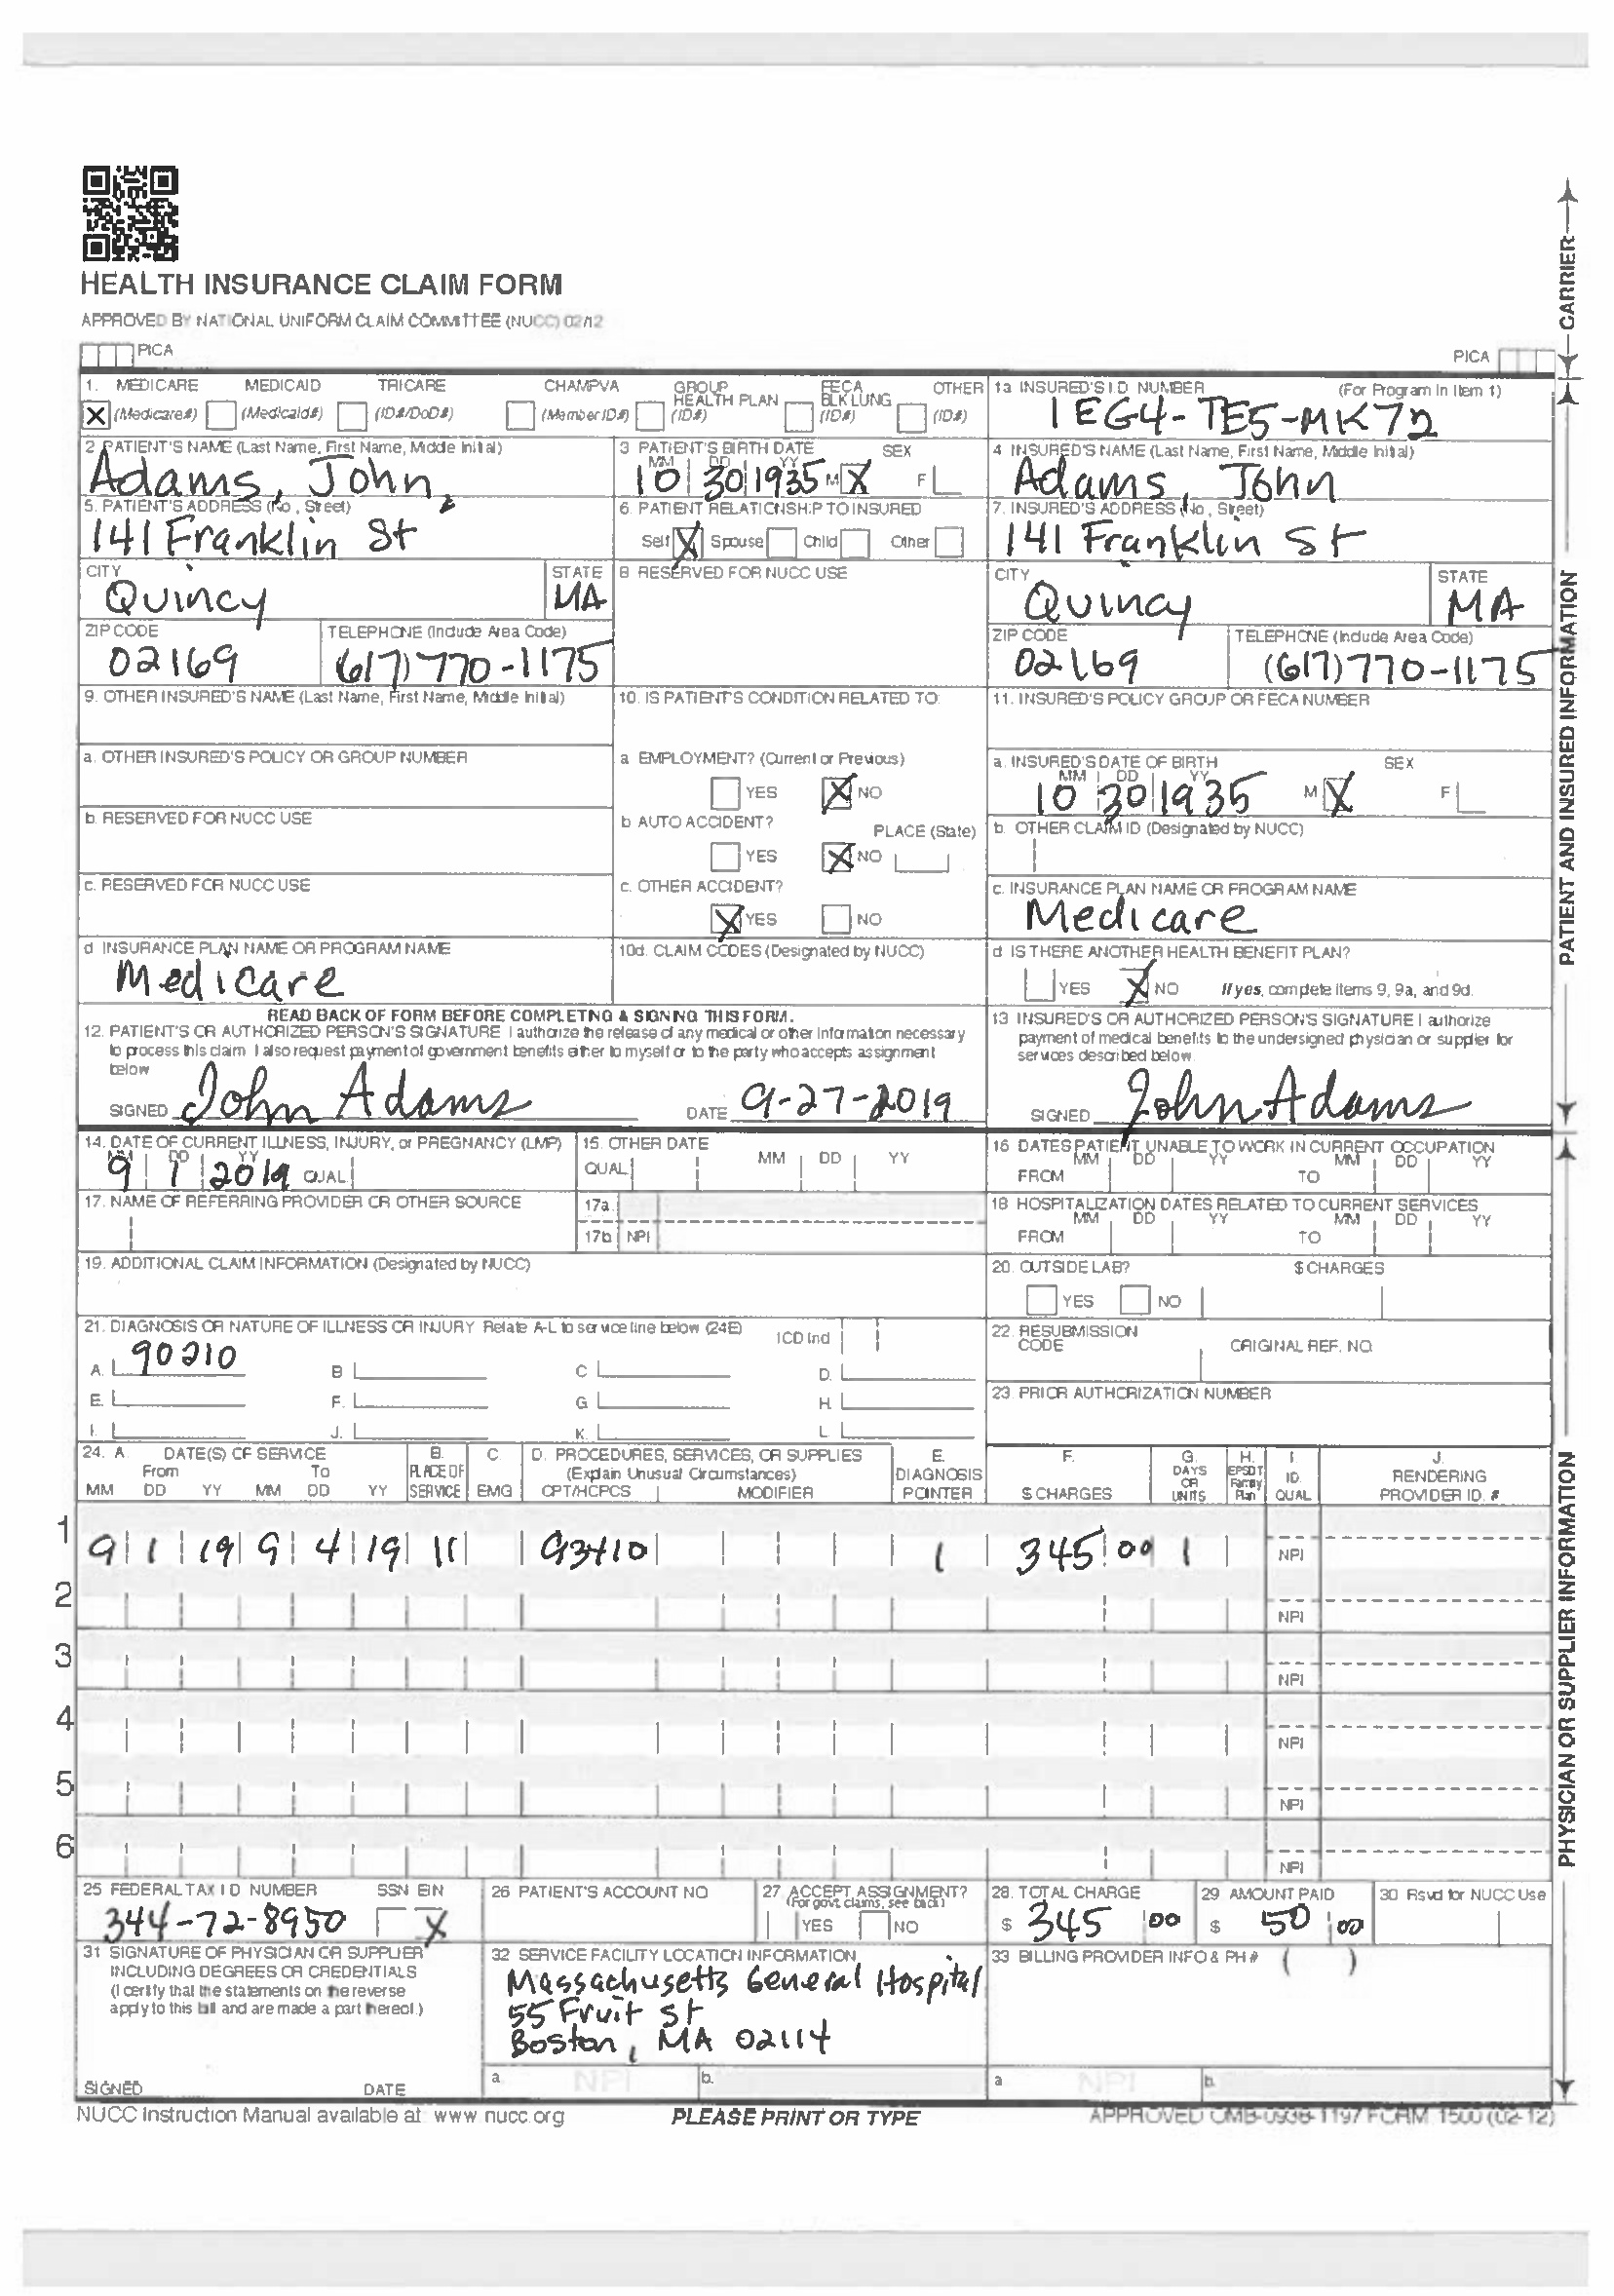 HEALTH INSURANCE CLAIM FORM
APPROVED BY NATIONAL UNIFORM CLAIM COMMITTEE (NUCC) 02/12
PICA PICA
CARRIER
1. MEDICARE MEDICAID TRICARE CHAMPVA GROUP HEALTH PLAN FECA BLK LUNG OTHER
X (Medicare#) (Medicaid#) (ID#/DoD#) (Member ID#) (ID#) (ID#) (ID#)
1a INSURED'S I.D. NUMBER (For Program in Item 1)
1EG4-TE5-MK72
2 PATIENT'S NAME (Last Name, First Name, Middle Initial)
Adams, John,
3 PATIENT'S BIRTH DATE SEX
MM DD YY
10 30 1935 M X F
4 INSURED'S NAME (Last Name, First Name, Middle Initial)
Adams, John
5. PATIENT'S ADDRESS (No., Street)
141 Franklin St
6. PATIENT RELATIONSHIP TO INSURED
Self X Spouse Child Other
7. INSURED'S ADDRESS (No., Street)
141 Franklin St
CITY STATE
Quincy MA
8 RESERVED FOR NUCC USE
CITY STATE
Quincy MA
ZIP CODE TELEPHONE (Include Area Code)
02169 (617) 770-1175
ZIP CODE TELEPHONE (Include Area Code)
02169 (617) 770-1175
9. OTHER INSURED'S NAME (Last Name, First Name, Middle Initial)
10. IS PATIENT'S CONDITION RELATED TO:
11. INSURED'S POLICY GROUP OR FECA NUMBER
a. OTHER INSURED'S POLICY OR GROUP NUMBER
a EMPLOYMENT? (Current or Previous)
YES X NO
a. INSURED'S DATE OF BIRTH SEX
MM DD YY
10 30 1935 M X F
b RESERVED FOR NUCC USE
b AUTO ACCIDENT? PLACE (State)
YES X NO
b. OTHER CLAIM ID (Designated by NUCC)
c. RESERVED FOR NUCC USE
c. OTHER ACCIDENT?
X YES NO
c. INSURANCE PLAN NAME OR PROGRAM NAME
Medicare
d INSURANCE PLAN NAME OR PROGRAM NAME
Medicare
10d. CLAIM CODES (Designated by NUCC)
d IS THERE ANOTHER HEALTH BENEFIT PLAN?
YES X NO If yes, complete items 9, 9a, and 9d.
READ BACK OF FORM BEFORE COMPLETING & SIGNING THIS FORM.
12. PATIENT'S OR AUTHORIZED PERSON'S SIGNATURE I authorize the release of any medical or other information necessary
to process this claim I also request payment of government benefits either to myself or to the party who accepts assignment
below
SIGNED John Adams DATE 9-27-2019
13 INSURED'S OR AUTHORIZED PERSON'S SIGNATURE I authorize
payment of medical benefits to the undersigned physician or supplier for
services described below
SIGNED John Adams
PATIENT AND INSURED INFORMATION
14. DATE OF CURRENT ILLNESS, INJURY, or PREGNANCY (LMP)
MM DD YY
9 1 2019 QUAL.
15. OTHER DATE
QUAL. MM DD YY
16 DATES PATIENT UNABLE TO WORK IN CURRENT OCCUPATION
MM DD YY MM DD YY
FROM TO
17. NAME OF REFERRING PROVIDER OR OTHER SOURCE
17a.
17b NPI
18 HOSPITALIZATION DATES RELATED TO CURRENT SERVICES
MM DD YY MM DD YY
FROM TO
19. ADDITIONAL CLAIM INFORMATION (Designated by NUCC)
20. OUTSIDE LAB? $ CHARGES
YES NO
21. DIAGNOSIS OR NATURE OF ILLNESS OR INJURY Relate A-L to service line below (24E) ICD Ind
A. 90210 B C D.
E. F. G. H.
I. J. K. L.
22. RESUBMISSION CODE ORIGINAL REF. NO.
23. PRIOR AUTHORIZATION NUMBER
24. A. DATE(S) OF SERVICE B. C D. PROCEDURES, SERVICES, OR SUPPLIES E. F. G. H. I. J.
From To PLACE OF (Explain Unusual Circumstances) DIAGNOSIS DAYS OR UNITS EPSDT Family Plan ID. RENDERING
MM DD YY MM DD YY SERVICE EMG CPT/HCPCS MODIFIER POINTER $ CHARGES QUAL. PROVIDER ID. #
1 9 1 19 9 4 19 11 93410 1 345 00 1 NPI
2 NPI
3 NPI
4 NPI
5 NPI
6 NPI
25 FEDERAL TAX I.D. NUMBER SSN EIN
344-72-8950 X
26 PATIENT'S ACCOUNT NO
27 ACCEPT ASSIGNMENT?
(For govt. claims, see back)
YES NO
28. TOTAL CHARGE
$ 345 00
29 AMOUNT PAID
$ 50 00
30 Rsvd for NUCC Use
31 SIGNATURE OF PHYSICIAN OR SUPPLIER
INCLUDING DEGREES OR CREDENTIALS
(I certify that the statements on the reverse
apply to this bill and are made a part thereof.)
SIGNED DATE
32 SERVICE FACILITY LOCATION INFORMATION
Massachusetts General Hospital
55 Fruit St
Boston, MA 02114
a. NPI b.
33 BILLING PROVIDER INFO & PH # ( )
a NPI b
PHYSICIAN OR SUPPLIER INFORMATION
NUCC Instruction Manual available at: www.nucc.org PLEASE PRINT OR TYPE APPROVED OMB-0938-1197 FORM 1500 (02-12)